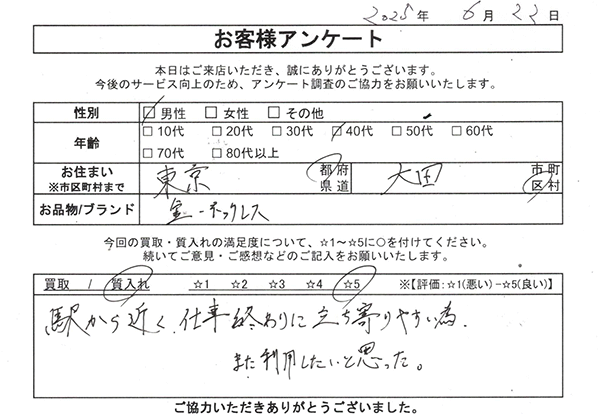 2025年 6月 22日
お客様アンケート
本日はご来店いただき、誠にありがとうございます。
今後のサービス向上のため、アンケート調査のご協力をお願いいたします。
性別 ☑男性 □女性 □その他
年齢 □10代 □20代 □30代 ☑40代 □50代 □60代
□70代 □80代以上
お住まい ※市区町村まで 東京 都府県道 大田 市町区村
お品物/ブランド 金-ネックレス
今回の買取・質入れの満足度について、☆1～☆5に○を付けてください。
続いてご意見・ご感想などのご記入をお願いいたします。
買取 / 質入れ ☆1 ☆2 ☆3 ☆4 ☆5 ※【評価:☆1(悪い)-☆5(良い)】
駅から近く、仕事終わりに立ち寄りやすい為、
また利用したいと思った。
ご協力いただきありがとうございました。